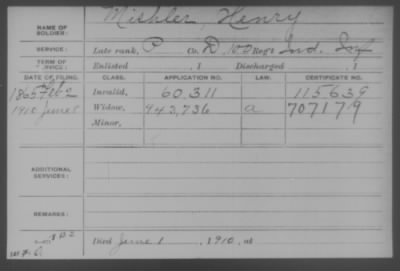 NAME OF SOLDIER: Mishler, Henry
SERVICE: Late rank, P Co. D, Reg't Ind. Inf
TERM OF SERVICE: Enlisted , 1 Discharged , 1
DATE OF FILING. CLASS. APPLICATION NO. LAW. CERTIFICATE NO.
1865 Feb 2 Invalid, 60,311 115639
1910 June Widow, 943,736 a 707179
Minor,
ADDITIONAL SERVICES:
REMARKS:
Died June 1, 1910, at